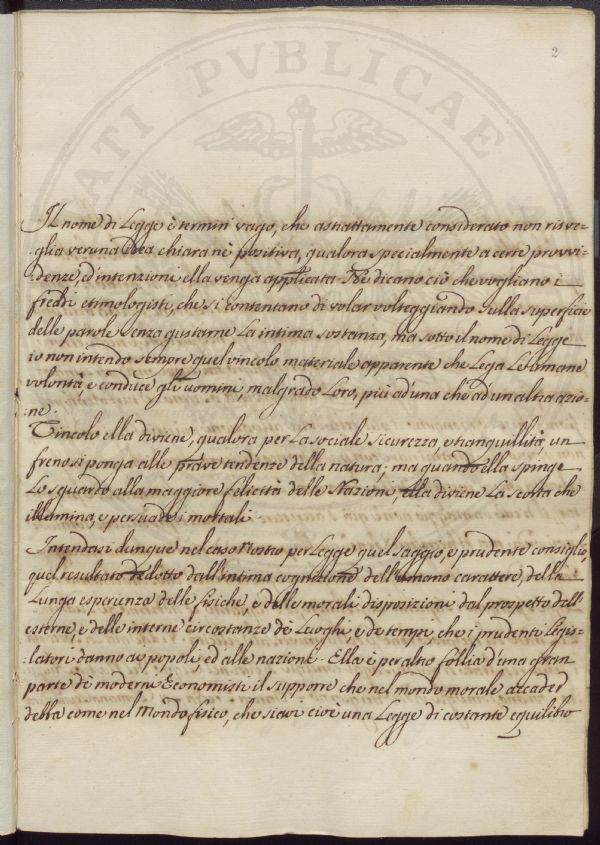 2
Il nome di Legge è termini vago, che astrattamente considerato non risve-
:glia veruna idea chiara nè positiva, qualora specialmente a certe provvi-
:denze, ed intenzioni ella venga applicata. Nè dicano ciò che vogliano i
freddi etimologisti, che si contentano di volar volteggiando sulla superficie
delle parole senza gustarne La intima sostanza, ma sotto il nome di Legge
io non intendo sempre quel vincolo materiale apparente che Lega Le Umane
volontà, e conduce gli uomini, malgrado Loro, più ad una che ad un altra azio-
:ne.
Vincolo ella diviene, qualora per La sociale sicurezza, e tranquillità, un
freno si ponga alle prave tendenze della natura; ma quando ella spinge
Lo sguardo alla maggiore felicità delle Nazioni Ella diviene La scorta che
illumina, e persuade i mortali.
Intendasi dunque nel caso Nostro per Legge quel saggio, e prudente consiglio,
quel resultato dedotto dall'intima cognizione dell'umano carattere, della
Lunga esperienza delle fisiche, e delle morali disposizioni dal prospetto dell'
esterne, e delle interne circostanze de Luoghi, e de tempi, che i prudenti Legis-
:latori danno ai popoli, ed alle nazione. Ella è peraltro follia d'una gran
parte de moderni Economisti il supporre che nel mondo morale accader
debba come nel Mondo fisico, che siavi cioè una Legge di costante equilibrio
ATI PVBLICAE